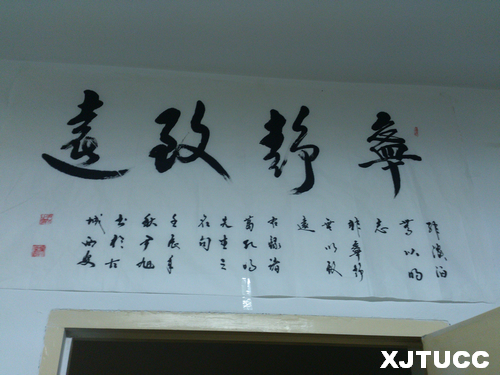 寧靜致遠
非淡泊
無以明
志
非寧靜
無以致
遠
右録諸
葛孔明
先生之
名句
壬辰年
秋尹旭
書於古
城西安
XJTUCC